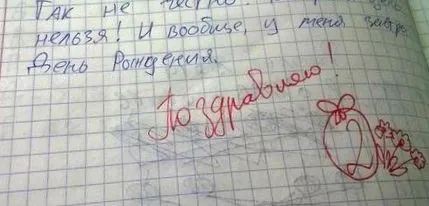 Так не честно!
нельзя! И вообще, у меня завтра
День Рождения.
Поздравляю!
2